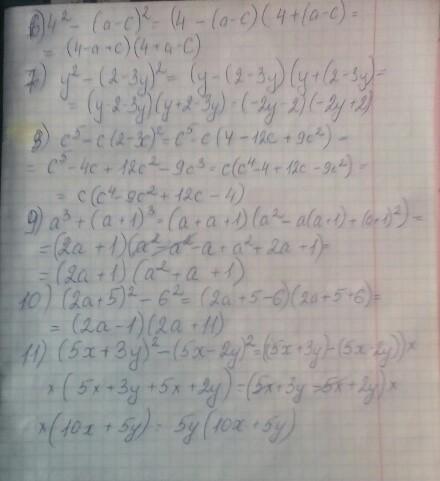 6) 4² - (a-c)² = (4 - (a-c)( 4+(a-c) =
= (4-a+c)(4+a-c)
7) y² - (2-3y)² = (y - (2-3y)(y+(2-3y) =
= (y-2-3y)(y+2-3y) = (-2y-2)(-2y+2)
8) c⁵ - c(2-3c)² = c⁵ - c(4-12c+9c²) =
= c⁵ - 4c + 12c² - 9c³ = c(c⁴-4+12c-9c²) =
= c(c⁴-9c²+12c-4)
9) a³ + (a+1)³ = (a+a+1)(a²-a(a+1)+(a+1)²) =
= (2a+1)(a²-a²-a+a²+2a+1) =
= (2a+1)(a²+a+1)
10) (2a+5)² - 6² = (2a+5-6)(2a+5+6) =
= (2a-1)(2a+11)
11) (5x+3y)² - (5x-2y)² = ((5x+3y)-(5x-2y)) ×
× (5x+3y+5x+2y) = (5x+3y-5x+2y) ×
× (10x+5y) = 5y(10x+5y)